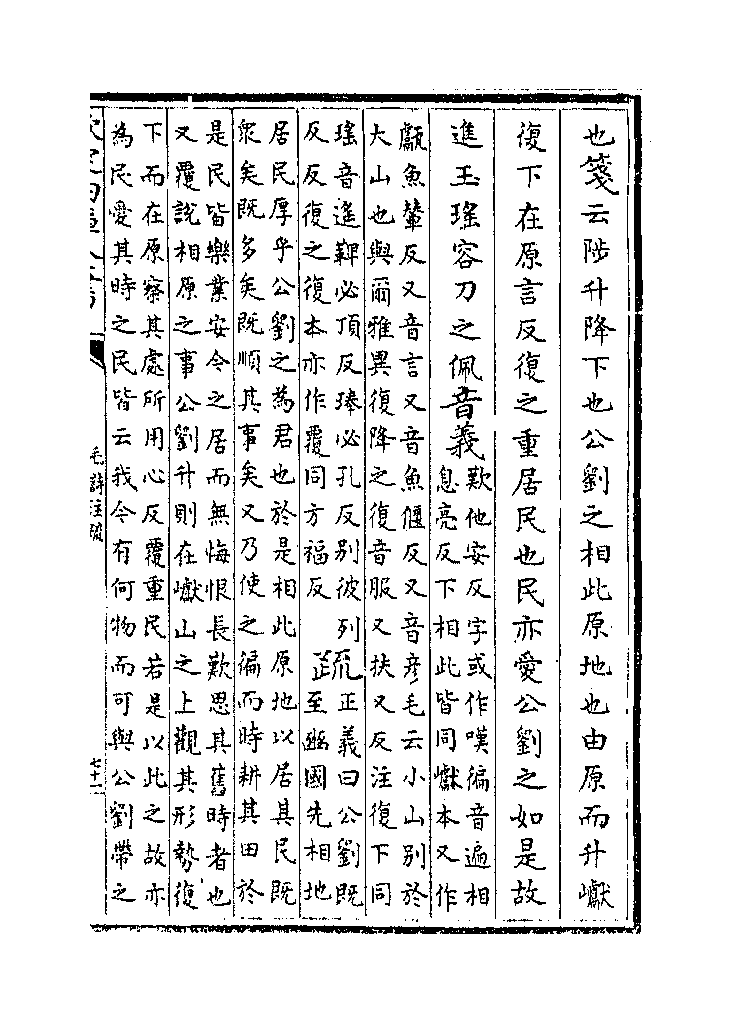 也箋云陟升降下也公劉之相此原地也由原而升巘
復下在原言反復之重居民也民亦愛公劉之如是故
進玉瑤容刀之佩音義歎他安反字或作嘆徧音遍相
息亮反下相此皆同巘本又作
甗魚輦反又音言又音魚偃反又音彥毛云小山別於
大山也與爾雅異復降之復音服又扶又反注復下同
瑤音遙鞞必頂反琫必孔反別彼列
反反復之復本亦作覆同方福反
疏正義曰公劉既
至豳國先相地
居民厚乎公劉之為君也於是相此原地以居其民既
眾矣既多矣既順其事矣又乃使之徧而時耕其田於
是民皆樂業安今之居而無悔恨長歎思其舊時者也
又覆說相原之事公劉升則在巘山之上觀其形勢復
下而在原察其處所用心反覆重民若是以此之故亦
為民愛其時之民皆云我今有何物而可與公劉帶之
毛詩注疏
七十二